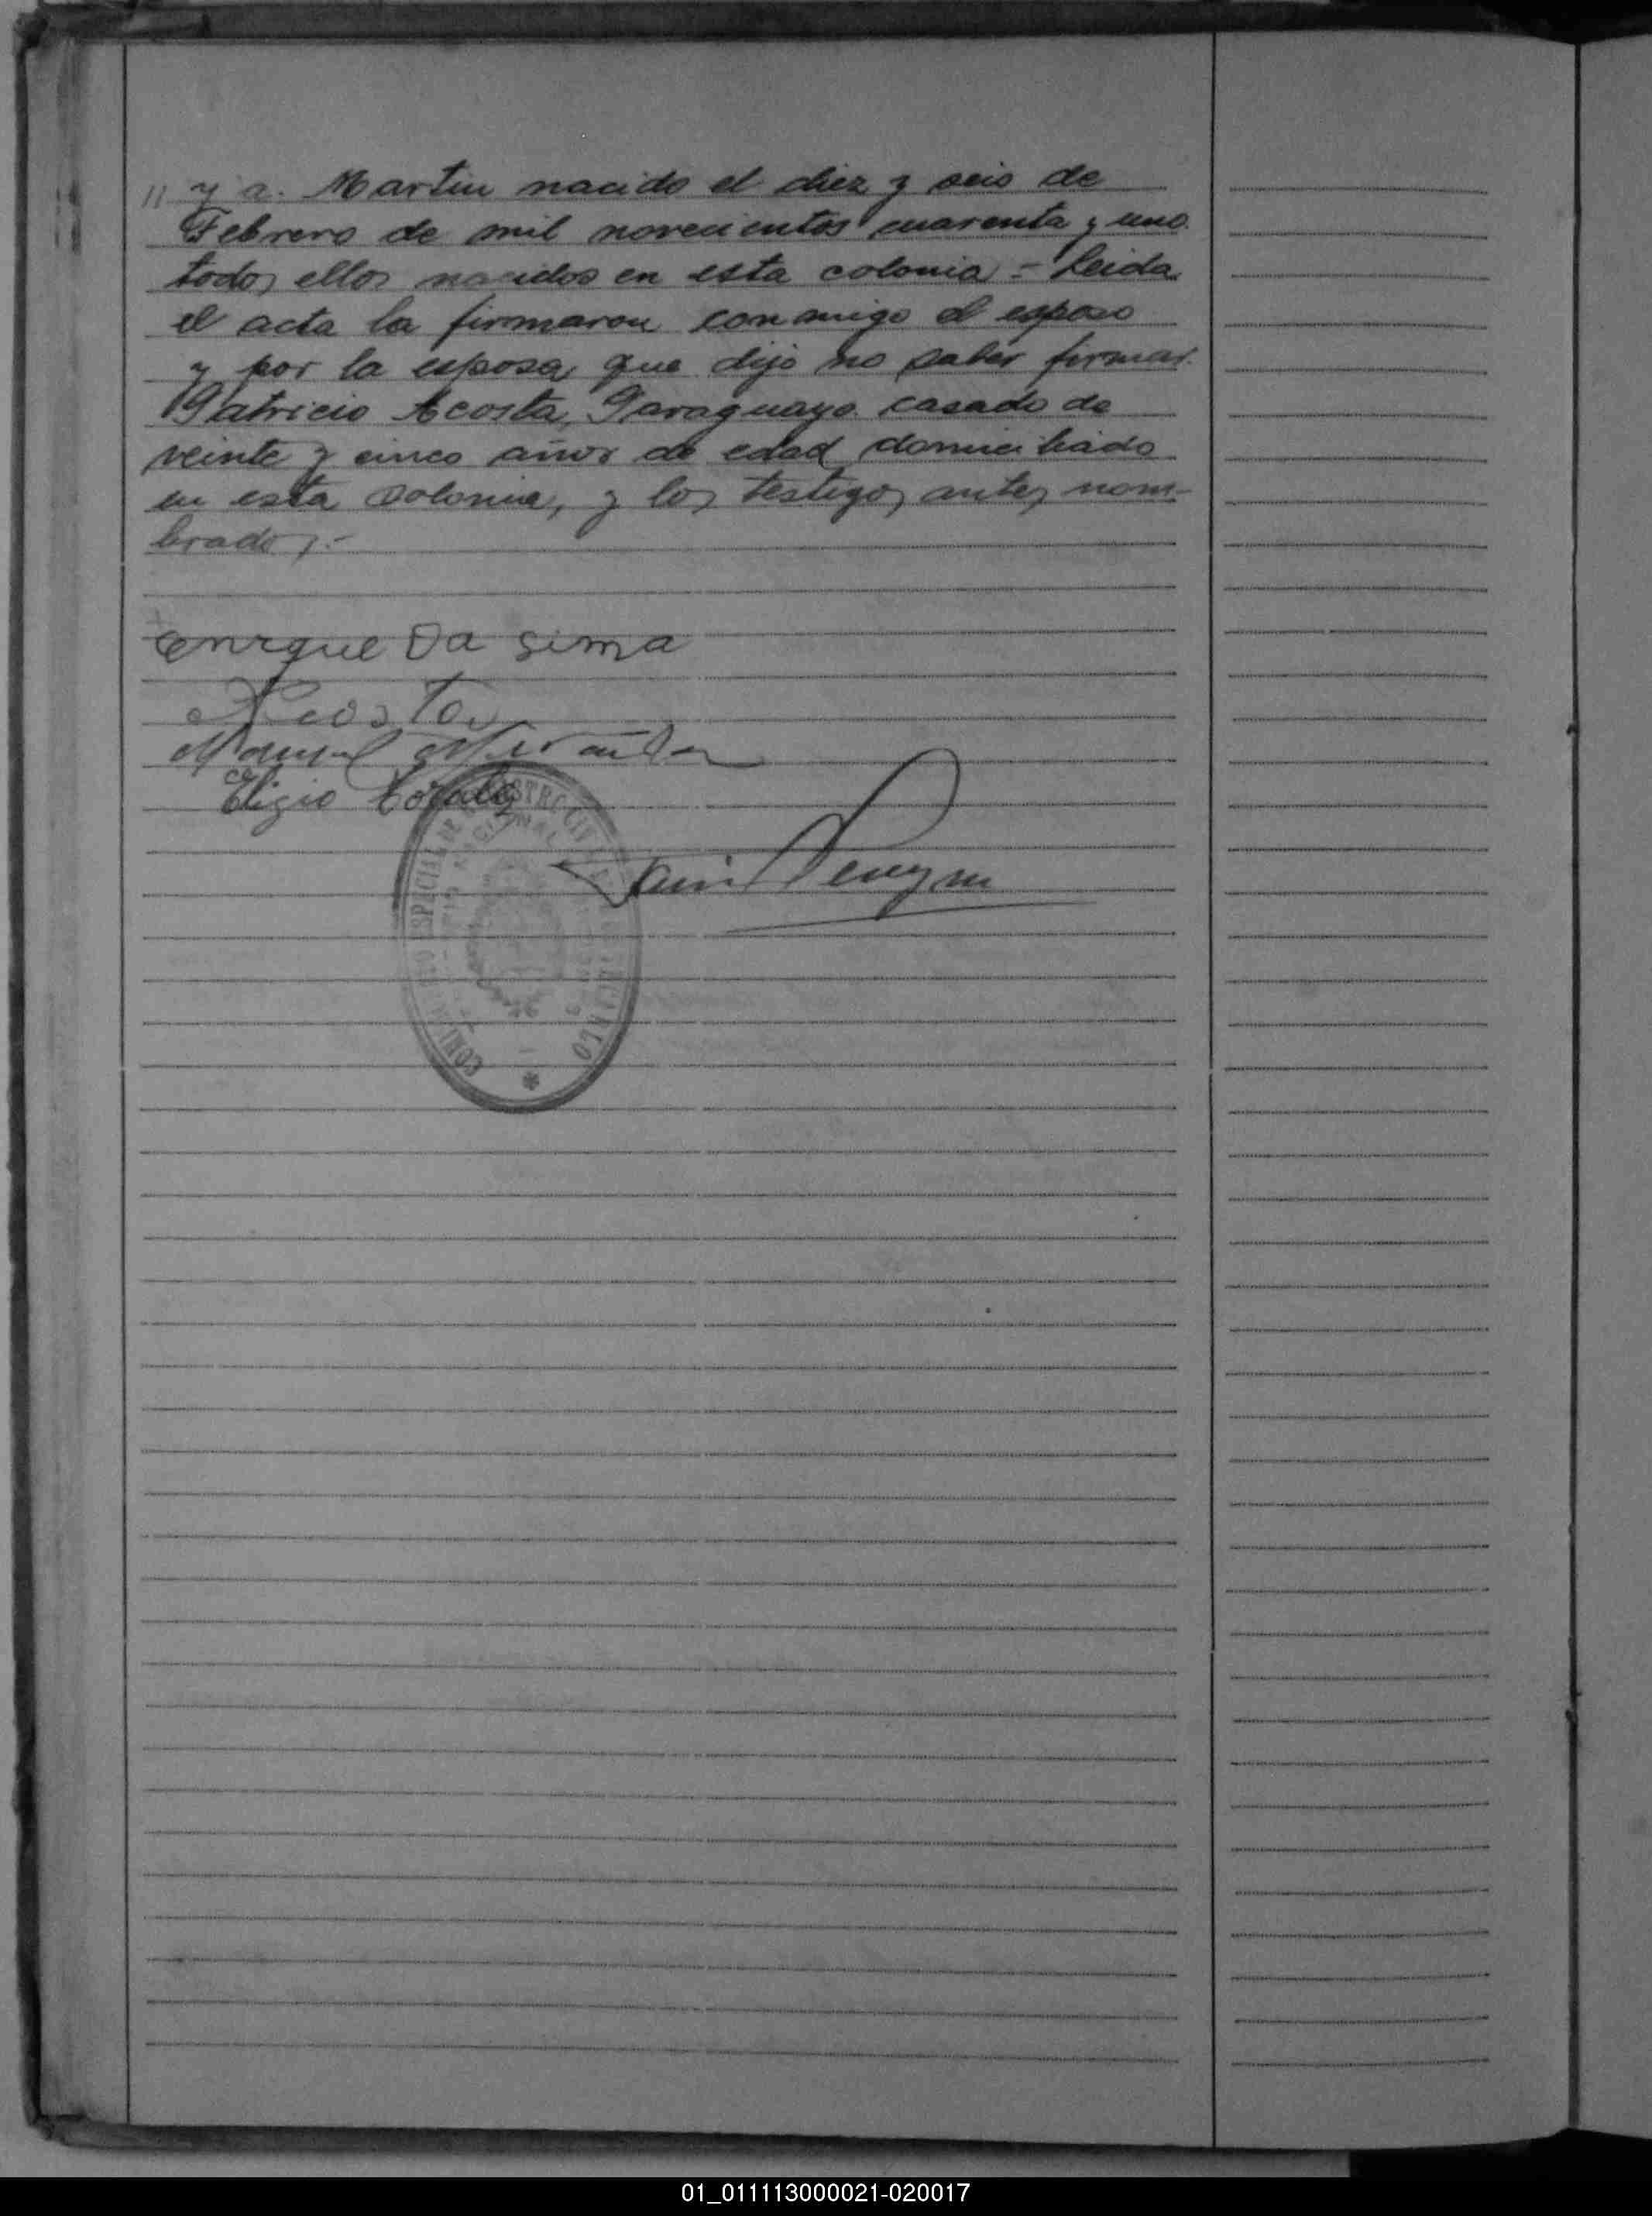 // y a. Martin nacido el diez y seis de
Febrero de mil novecientos cuarenta y uno.
todos ellos nacidos en esta colonia = Leida
el acta la firmaron conmigo el esposo
y por la esposa, que dijo no saber firmar.
Patricio Acosta, Paraguayo. casado de
veinte y cinco años de edad domiciliado
en esta colonia, y los testigos antes nom-
brados.-
Enrque Da Sima
Acosta
Manuel Miranda
Eligio
ESPECIAL DE
01_011113000021-020017